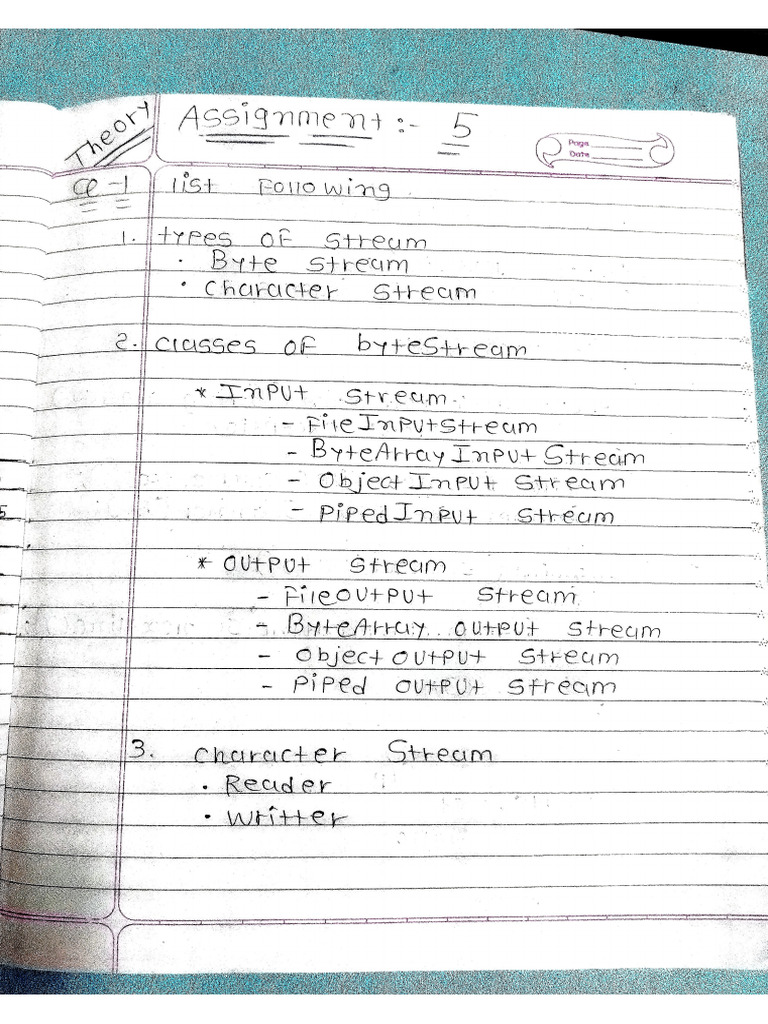 Theory
Assignment :- 5
Page
Date
Q-1 list Following
1. types of stream
• Byte stream
• character stream
2. classes of byteStream
* InPut stream.
- FileInPutStream
- ByteArrayInPut Stream
- ObjectInPut Stream
- PipedInPut Stream
* OutPut Stream
- FileOutPut Stream
- ByteArray OutPut Stream
- Object OutPut Stream
- Piped OutPut Stream
3. character Stream
• Reader
• writter